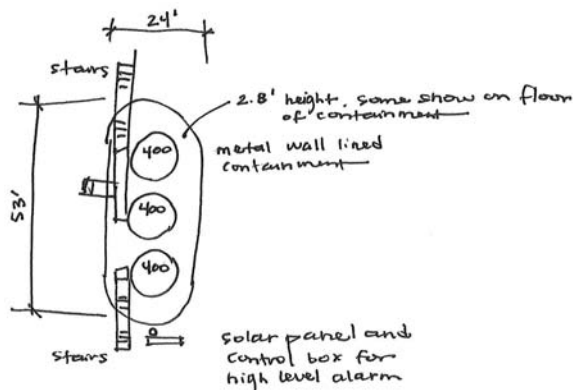 24'
stairs
2.8' height, some snow on floor
of containment
metal wall lined
containment
400
400
400
53'
stairs
solar panel and
control box for
high level alarm